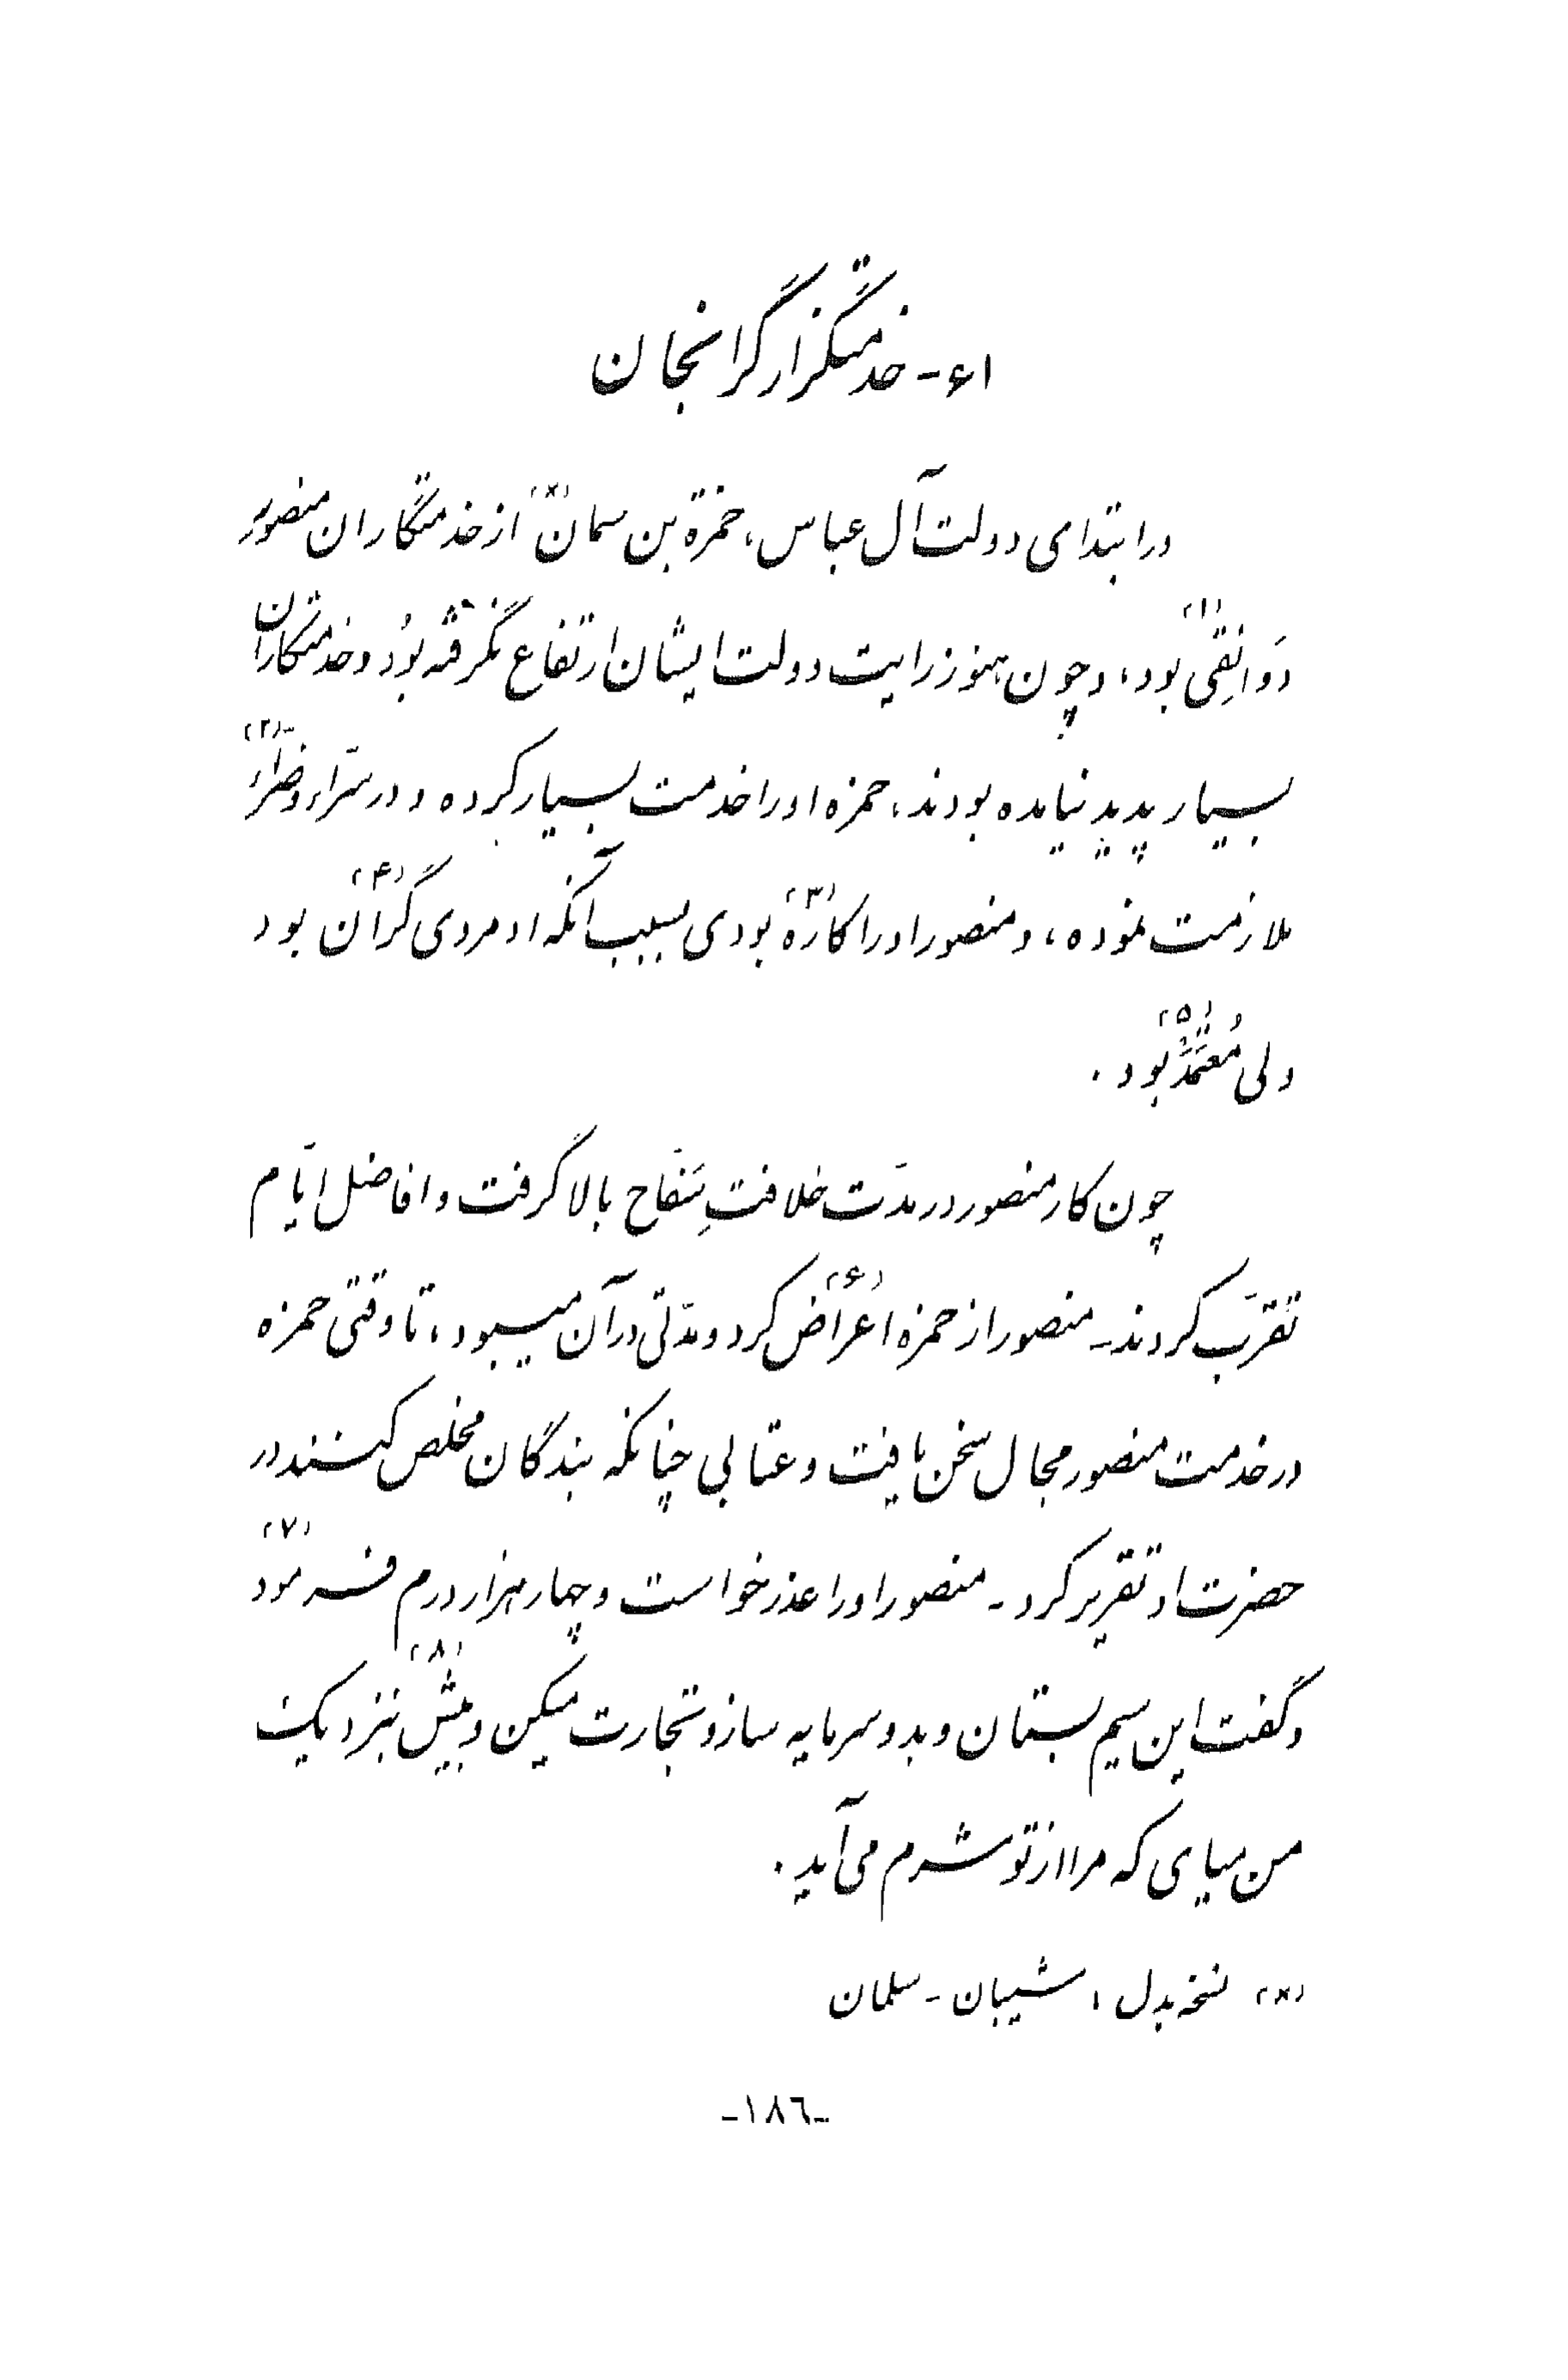 ۶۱- خدمتگزار گرانجان
در ابتدای دولت آل عباس، حمزة بن سمان(×) از خدمتگاران منصور
دَوانِقی(۱) بود، و چون هنوز رایت دولت ایشان ارتفاع نگرفته بُود و خدمتکاران
بسیار پدید نیامده بودند، حمزه او را خدمت بسیار کرده و در سَرّاء و ضَرّاء(۲)
ملازمت نموده، و منصور او را کارِه(۳) بودی بسبب آنکه او مردی گران(۴) بود
ولی مُعتَمَد(۵) بود.
چون کار منصور در مدّت خلافتِ سَفّاح بالا گرفت و افاضل ایّام
تقرّب کردند ـ منصور از حمزه اعراض(۶) کرد و مدّتی در آن میبود، تا وقتی حمزه
در خدمت منصور مجال سخن یافت و عتابی چنانکه بندگان مخلص کنند در
حضرت او تقریر کرد ـ منصور او را عذر خواست و چهار هزار درم فرمود(۷)
و گفت این سیم بستان و بدو سرمایه ساز و تجارت میکن و بیش(۸) بنزدیک
من میای که مرا از تو شرم می‌آید.
(×) نسخه بدل : شیبان ـ سلمان
-١٨٦-